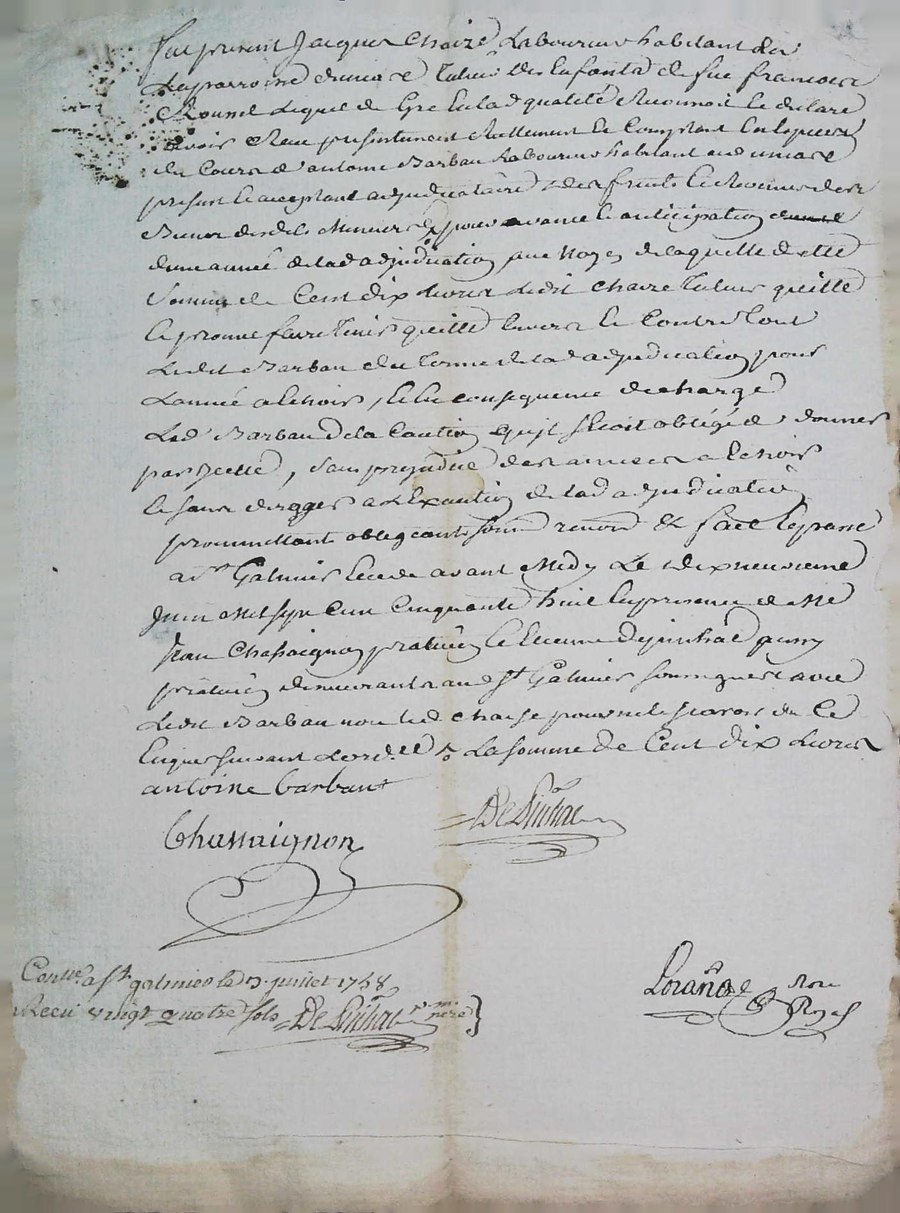 fut present Jacques Chaize Laboureur habitant de
la parroisse daveize Tuteur des Enfants de feu francois
lequel de gre en lad qualeté Reconnoit et declare
avoir Receu presentement Reellement et Comptant En Especes
du Cours d'antoine Barban Laboureur habitant aud
present et acceptant adjudicataire des fruits et Revenus des
Biens desdits Mineurs pour avance et anticipation
dune année de lad adjudication, au Moyen de laquelle dette
Somme de Cent dix Livres Ledit Chaize Tuteur quitte
et promet faire Tenir quitte Envers et Contre Tout
Ledit Barban du Terme de lad adjudication pour
Lannée a Echoir, Et En consequence decharge
Led Barban de la Caution quil Etoit obligé de donner
par Icelle, Sans prejudice des années a Echoir
et sans deroger a L'Execution de lad adjudication
promettant obligeant soum renon & fait Et passe
a St Galmier Etude avant Midy Le dix neuvieme
Juin Mil Sept Cens Cinquante huit En presence de Me
Jean Chassaignon praticien et Etienne depinhac aussy
praticien demeurants aud St Galmier soussignes avec
Ledit Barban non led Chaise pour ne le scavoir de Ce
Enquis suivant Lord.ce La somme de Cent dix Livres
antoine barban
De Pinhac
Chassaignon
Contlé. a St. galmier le 3. juillet 1758
Receu vingt quatre sols De Pinhac
Noe
Royal